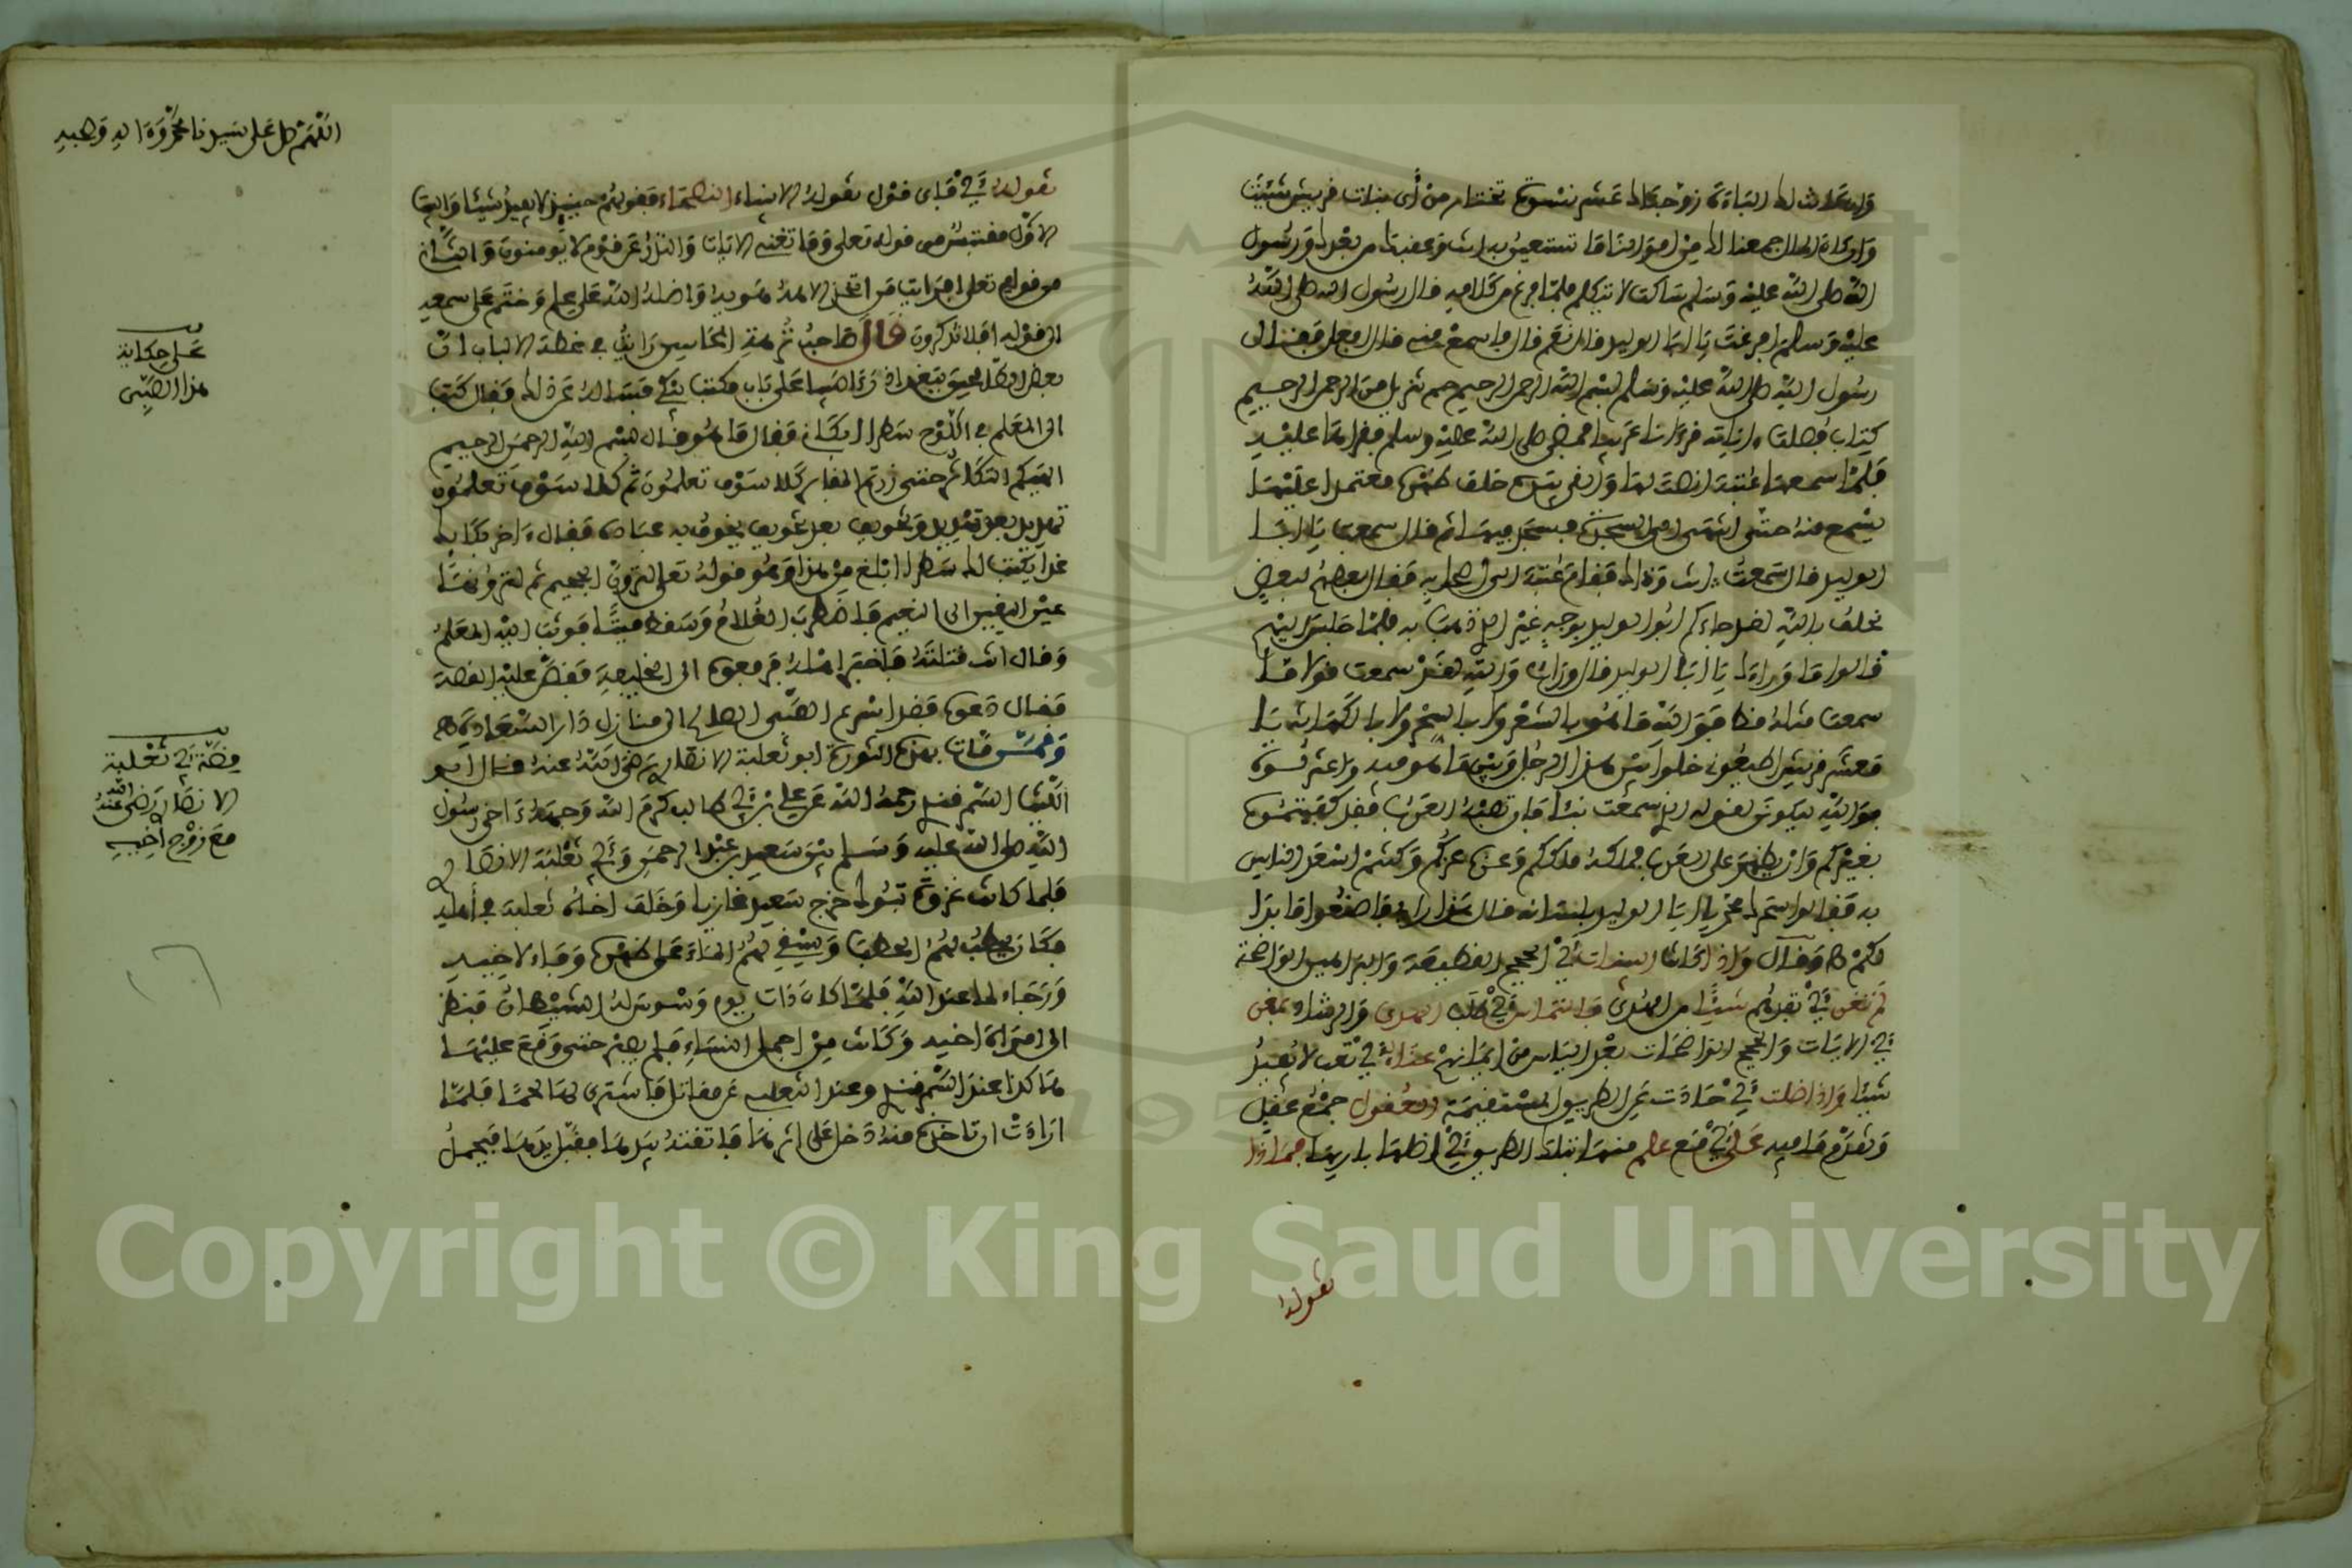 وان كانت لك الباءة زوجناك عشر نسوة تختار من أي بنات قريش شئت
وان كان المال جمعنا لك من اموالنا ما تستعين به انت وعقبك من بعدك ورسول
الله صلى الله عليه وسلم ساكت لا يتكلم فلما فرغ من كلامه قال رسول الله صلى الله
عليه وسلم افرغت يا ابا الوليد قال نعم قال فاسمع منه قال افعل فقرأ
رسول الله صلى الله عليه وسلم بسم الله الرحمن الرحيم حم تنزيل من الرحمن الرحيم
كتاب فصلت ءاياته قرءانا عربيا فمضى صلى الله عليه وسلم فقراها عليه
فلما سمعها عتبة انصت لها والقى يديه خلف ظهره معتمدا عليهما
يسمع منه حتى انتهى الى السجدة فسجد فيها ثم قال سمعت يا ابا
الوليد قال سمعت انت وذاك فقام عتبة الى اصحابه فقال بعضهم لبعض
نحلف بالله لقد جاءكم ابو الوليد بوجه غير الذي ذهب به فلما جلس اليهم
قالوا ما وراءك يا ابا الوليد قال وراي والله لقد سمعت قولا ما
سمعت مثله قط فوالله ما هو بالشعر ولا بالسحر ولا بالكهانة يا
معشر قريش اطيعوني خلوا بين هذا الرجل وبين ما هو فيه واعتزلوه
فوالله ليكونن لقوله الذي سمعت نبأ فان تصبه العرب فقد كفيتموه
بغيركم وان يظهر على العرب فملكه ملككم وعزه عزكم وكنتم اسعد الناس
به فقالوا سحرك محمد يا ابا الوليد بلسانه قال هذا رايي فاصنعوا ما بدا
لكم وقال واذا كانت البينات أي الحجج القطعية والبراهين الواضحة
لم تغن أي تفدهم شيئا من الهدى فالتماس أي طلب الهدى والرشاد بمعنى
أي الايات والحجج الواضحات بعد الياس من ايمانهم عناء أي تعب لا يفيد
شيئا واذا ضلت أي حادت عن الطريق المستقيمة العقول جمع عقل
وتقدم ما فيه على أي مع علم منها بتلك الطريق أي اضلها باريها فماذا
تقوله
اللهم صل على سيدنا محمد وءاله وصحبه
تقوله أي فاي قول تقوله الانبياء النصحاء فقولهم حينئذ لا يفيد شيئا والبيت
الاول مقتبس من قوله تعلى وما تغنى الايات والنذر عن قوم لا يومنون والثاني
من قوله تعلى افرايت من اتخذ الاهه هويه واضله الله على علم وختم على سمعه
الى قوله افلا تذكرون قال صاحب نزهة المجالس رايت في عظة الالباب ان
بعض الصالحين ببغداد رءا صبيا على باب مكتب يبكي فساله عن ذلك فقال كتب
الى المعلم في اللوح سطرا ابكاني فقال ما هو قال بسم الله الرحمن الرحيم
الهيكم التكاثر حتى زرتم المقابر كلا سوف تعلمون ثم كلا سوف تعلمون
تهديد بعد تهديد وتخويف بعد تخويف يخوف به عباده فقال ءاخر
غدا يكتب لك سطرا ابلغ من هذا وهو قوله تعلى لترون الجحيم ثم لترونها
عين اليقين الى النعيم فاضطرب الغلام وسقط ميتا فوثب اليه المعلم
وقال انت قتلته فاخبر اهله فرفعوه الى الخليفة فقص عليه القصة
فقال دعوه فقد اسرع الصبي الصالح الى منازل دار السعادة
وممن مات بهذه السورة ابو ثعلبة الانصاري رضي الله عنه قال ابو
الليث السمرقندي رحمه الله عن علي بن أبي طالب كرم الله وجهه ءاخى رسول
الله صلى الله عليه وسلم بين سعيد بن عبد الرحمن وأبي ثعلبة الانصاري
فلما كانت غزوة تبوك خرج سعيد غازيا وخلف اخاه ثعلبة في أهله
فكان يحطب لهم الحطب ويسقي لهم الماء على ظهره وفاء لاخيه
ورجاء لما عند الله فلما كان ذات يوم وسوس له الشيطان فنظر
الى امراة اخيه وكانت من اجمل النساء فلم يصبر حتى وقع عليها
هاكذا عند السمرقندي وعند الثعلبي عن مقاتل فاشترى لها لحما فلما
ارادت ان تاخذه منه دخل على اثرها فاتقته بيدها فقبل يدها فيحمل
على حكاية
هذا الصبي
قصة أبي ثعلبة
الانصاري رضي الله عنه
مع زوج أخيه
Copyright © King Saud University
195